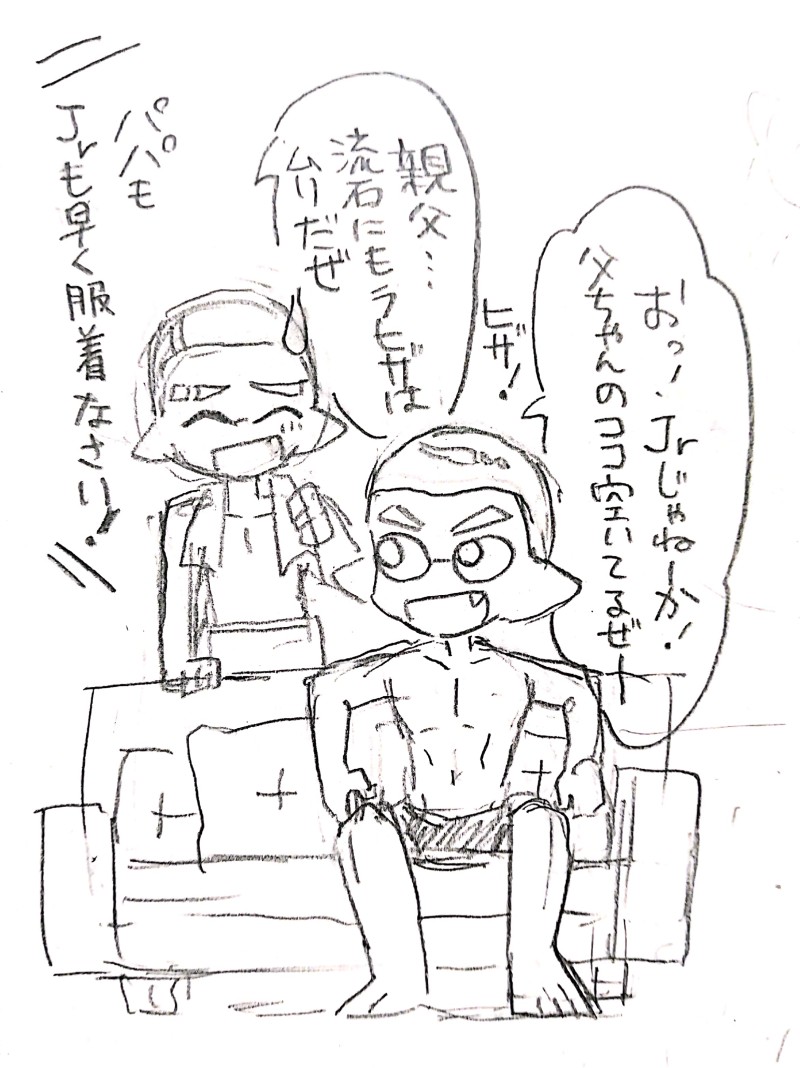 おっ!Jrじゃねーか!
父ちゃんのココ空いてるぜー
ヒザ!
親父…
流石にもうヒザは
ムリだぜ
パパも
Jrも早く服着なさい!